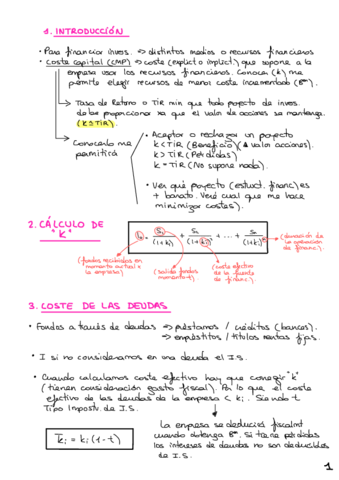 1. INTRODUCCIÓN
· Para financiar invers. => distintos medios o recursos financieros
· Coste capital (CMP) => coste (explícit o implícit.) que supone a la
empresa usar los recursos financieros. Conocer (k) me
permite elegir recursos de menor coste incrementado (Bº).
Tasa de Retorno o TIR min que todo proyecto de invers.
debe proporcionar xa que el valor de acciones se mantenga.
(k ≥ TIR).
Conocerlo me
permitirá
· Aceptar o rechazar un proyecto
k < TIR (Beneficio) (↑ valor acciones).
k > TIR (Pérdidas).
k = TIR (No supone nada).
· Ver qué proyecto (estruct. financ.) es
+ barato. Veré cual que me hace
minimizar costes).
2. CÁLCULO DE
"K"
I₀ = S₁/(1+k)¹ + S₂/(1+k)² + ... + Sₙ/(1+k)ⁿ
(duración de
la operación
de financ.).
(fondos recibidos en
momento actual x
la empresa)
(salida fondos
momento t)
(coste efectivo
de la fuente
de financ.).
3. COSTE DE LAS DEUDAS
· Fondos a través de deudas => préstamos / créditos (bancos).
=> empréstitos / títulos rentas fijas.
· I si no consideramos en una deuda el I.S.
· Cuando calculamos coste efectivo hay que corregir "k"
(tienen consideración gasto fiscal). Por lo que el coste
efectivo de las deudas de la empresa < kᵢ. Siendo t
Tipo Impositi. de I.S.
k̄ᵢ = kᵢ (1-t)
La empresa se deducirá fiscalmt
cuando obtenga Bº. Si tiene pérdidas
los intereses de deudas no son deducibles
de I.S.
1